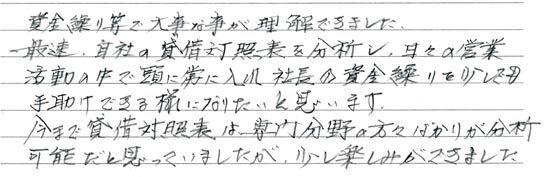 資金繰り等で大事な事が理解できました.
一最速.自社の貸借対照表を分析し.日々の営業
活動の中で頭に常に入れ社長の資金繰りを少しでも
手助けできる様になりたいと思います.
今まで貸借対照表は専門分野の方々ばかりが分析
可能だと思っていましたが.少し楽しみができました